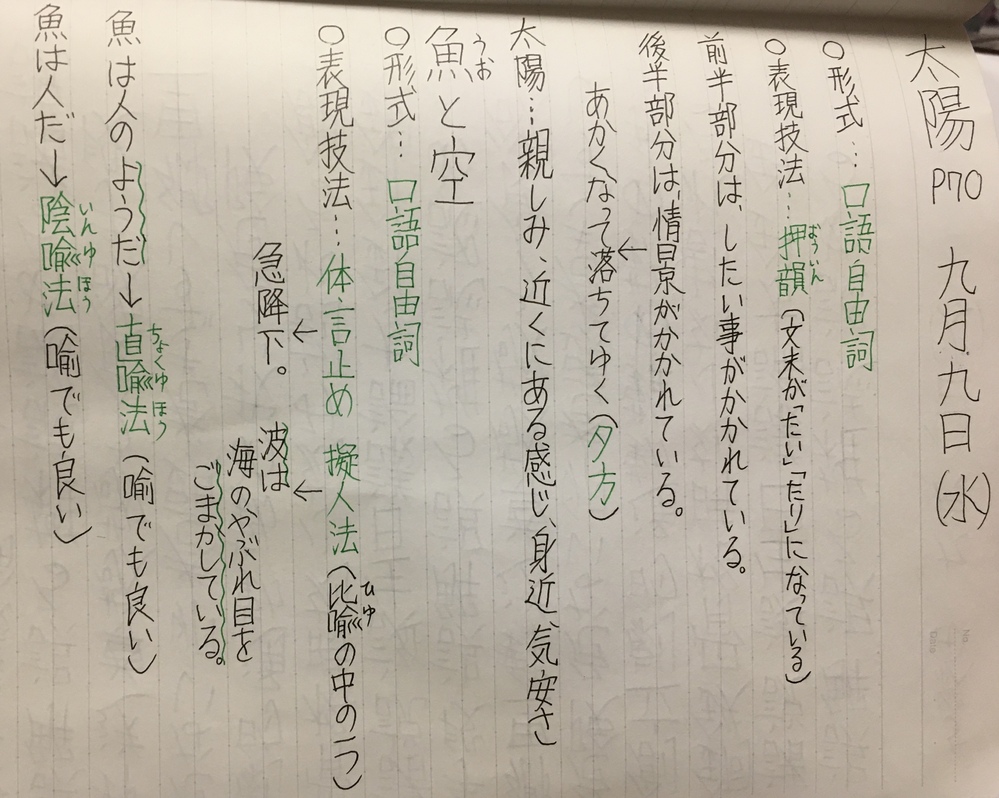 太陽 P70 九月九日(水)
○形式… 口語自由詞
○表現技法… 押韻(文末が「たい」「たり」になっている)
おういん
前半部分は、したい事がかかれている。
後半部分は、情景がかかれている。
↓
あかくなって落ちてゆく(夕方)
太陽…親しみ、近くにある感じ、身近、気安さ
魚と空
うお
○形式… 口語自由詞
○表現技法… 体言止め 擬人法(比喩の中の一つ)
ひゆ
↓
急降下。
↓
波は
海のやぶれ目を
ごまかしている。
魚は人のようだ→直喩法(喩でも良い)
ちょくゆほう
魚は人だ→陰喩法(喩でも良い)
いんゆほう